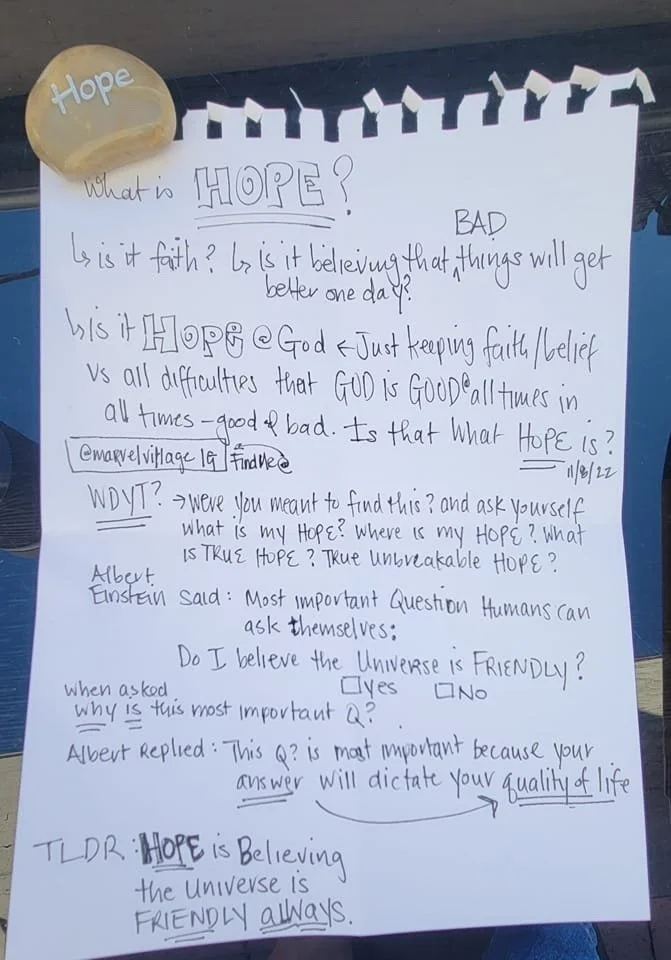 Hope
What is HOPE?
BAD
↳ is it faith? ↳ is it believing that ^ things will get
better one day?
↳ is it HOPE @ God ← Just keeping faith/belief
Vs all difficulties that GOD is GOOD @ all times in
all times – good & bad. Is that What HOPE is?
@marvelvillage IG Find Me @
11/8/22
WDYT? → were you meant to find this? and ask yourself
what is my HOPE? Where is my HOPE? What
is TRUE HOPE? True Unbreakable HOPE?
Albert
Einstein Said: Most important Question Humans can
ask themselves:
Do I believe the Universe is FRIENDLY?
□ Yes □ No
When asked
why is this most important Q?
Albert Replied: This Q? is most important because your
answer will dictate your quality of life
TLDR: HOPE is Believing
the Universe is
FRIENDLY always.